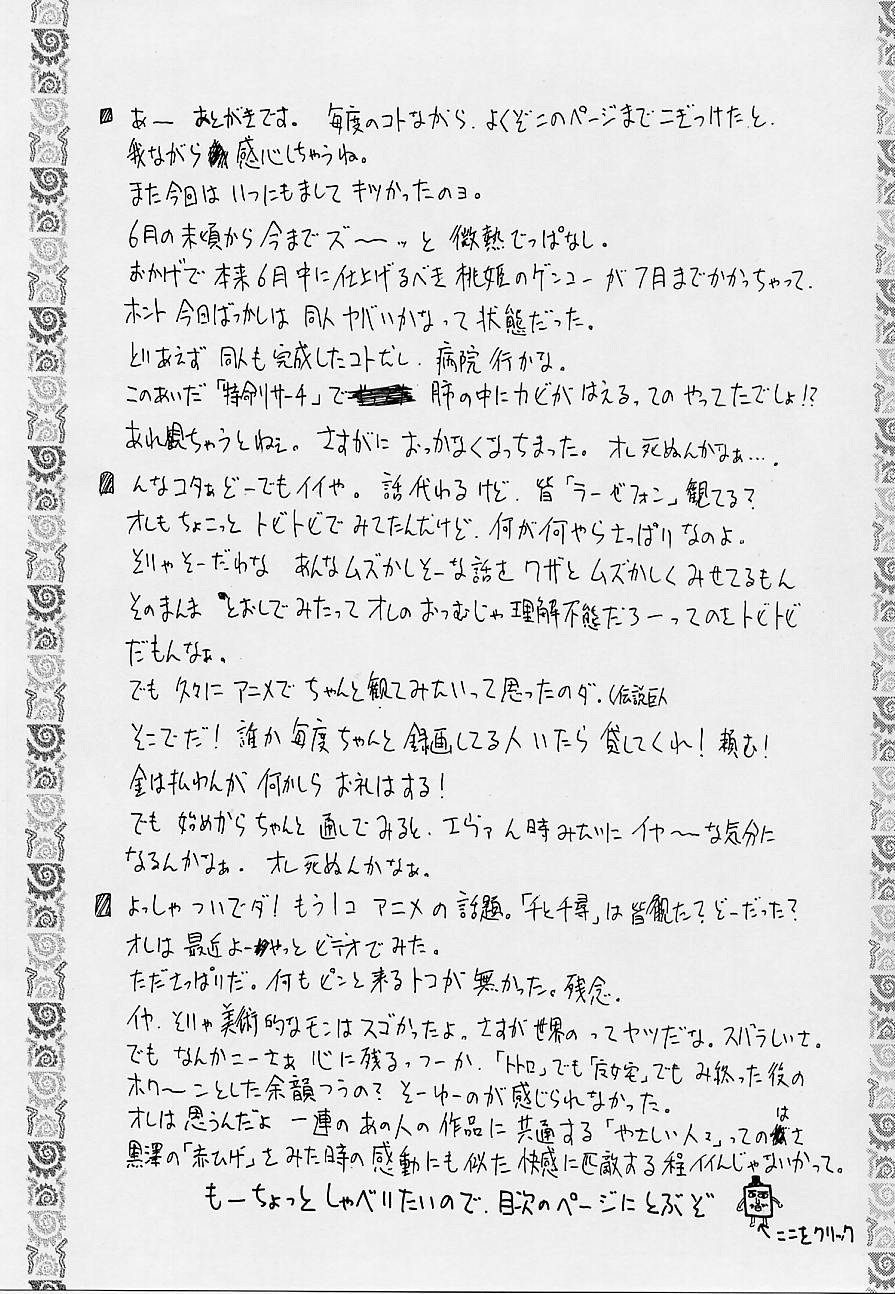 あー あとがきです。 毎度のコトながら、よくぞこのページまでこぎつけたと、
我ながら 感心しちゃうね。
また今回は いつにもまして キツかったのョ。
6月の末頃から 今まで ズ〜〜ッと 微熱でっぱなし。
おかげで 本来6月中に仕上げるべき 桃姫のゲンコーが 7月までかかっちゃって、
ホント 今回ばっかしは 同人 ヤバいかなって 状態だった。
とりあえず 同人も 完成したコトだし、病院 行かな。
このあいだ「特命リサーチ」で 肺の中にカビがはえるっての やってたでしょ!?
あれ観ちゃうとねェ。 さすがに おっかなくなっちまった。 オレ死ぬんかなぁ…．
んなコタぁ どーでもイイや。 話代わるけど、皆「ラーゼフォン」観てる?
オレもちょこっと トビトビで みてたんだけど、何が何やらさっぱりなのよ。
そりゃそーだわな あんなムズかしそーな話を ワザと ムズかしく みせてるもん
そのまんま とおしでみたって オレのおつむじゃ 理解不態だろーってのをトビトビ
だもんなぁ。
でも 久々に アニメで ちゃんと観てみたいって思ったのダ。(伝説巨人
そこでだ! 誰か 毎度 ちゃんと 録画してる人 いたら 貸してくれ! 頼む!
金は払わんが 何かしら お礼はする!
でも 始めからちゃんと 通しでみると、エヴァん時みたいに イヤ〜〜な気分に
なるんかなぁ。 オレ死ぬんかなぁ。
よっしゃ ついでダ! もう1コ アニメの話題。「千と千尋」は皆観た? どーだった?
オレは 最近 よーやっと ビデオでみた。
たださっぱりだ。何も ピンと来るトコが 無かった。残念．
イヤ、そりゃ美術的なモンはスゴかったよ。さすが世界の ってヤツだな。スバラしいさ。
でも なんかこーさぁ 心に残るっつーか、「トトロ」でも「魔女宅」でも み終った後の
ホワ〜ンとした余韻つうの? そーゆーのが感じられなかった。
オレは思うんだよ 一連の あの人の 作品に 共通する「やさしい人々」ってのはさ
黒澤の「赤ひげ」をみた時の 感動にも似た 快感に匹敵する程 イイんじゃないかって。
もーちょっと しゃべりたいので、目次のページに とぶぞ
ここをクリック